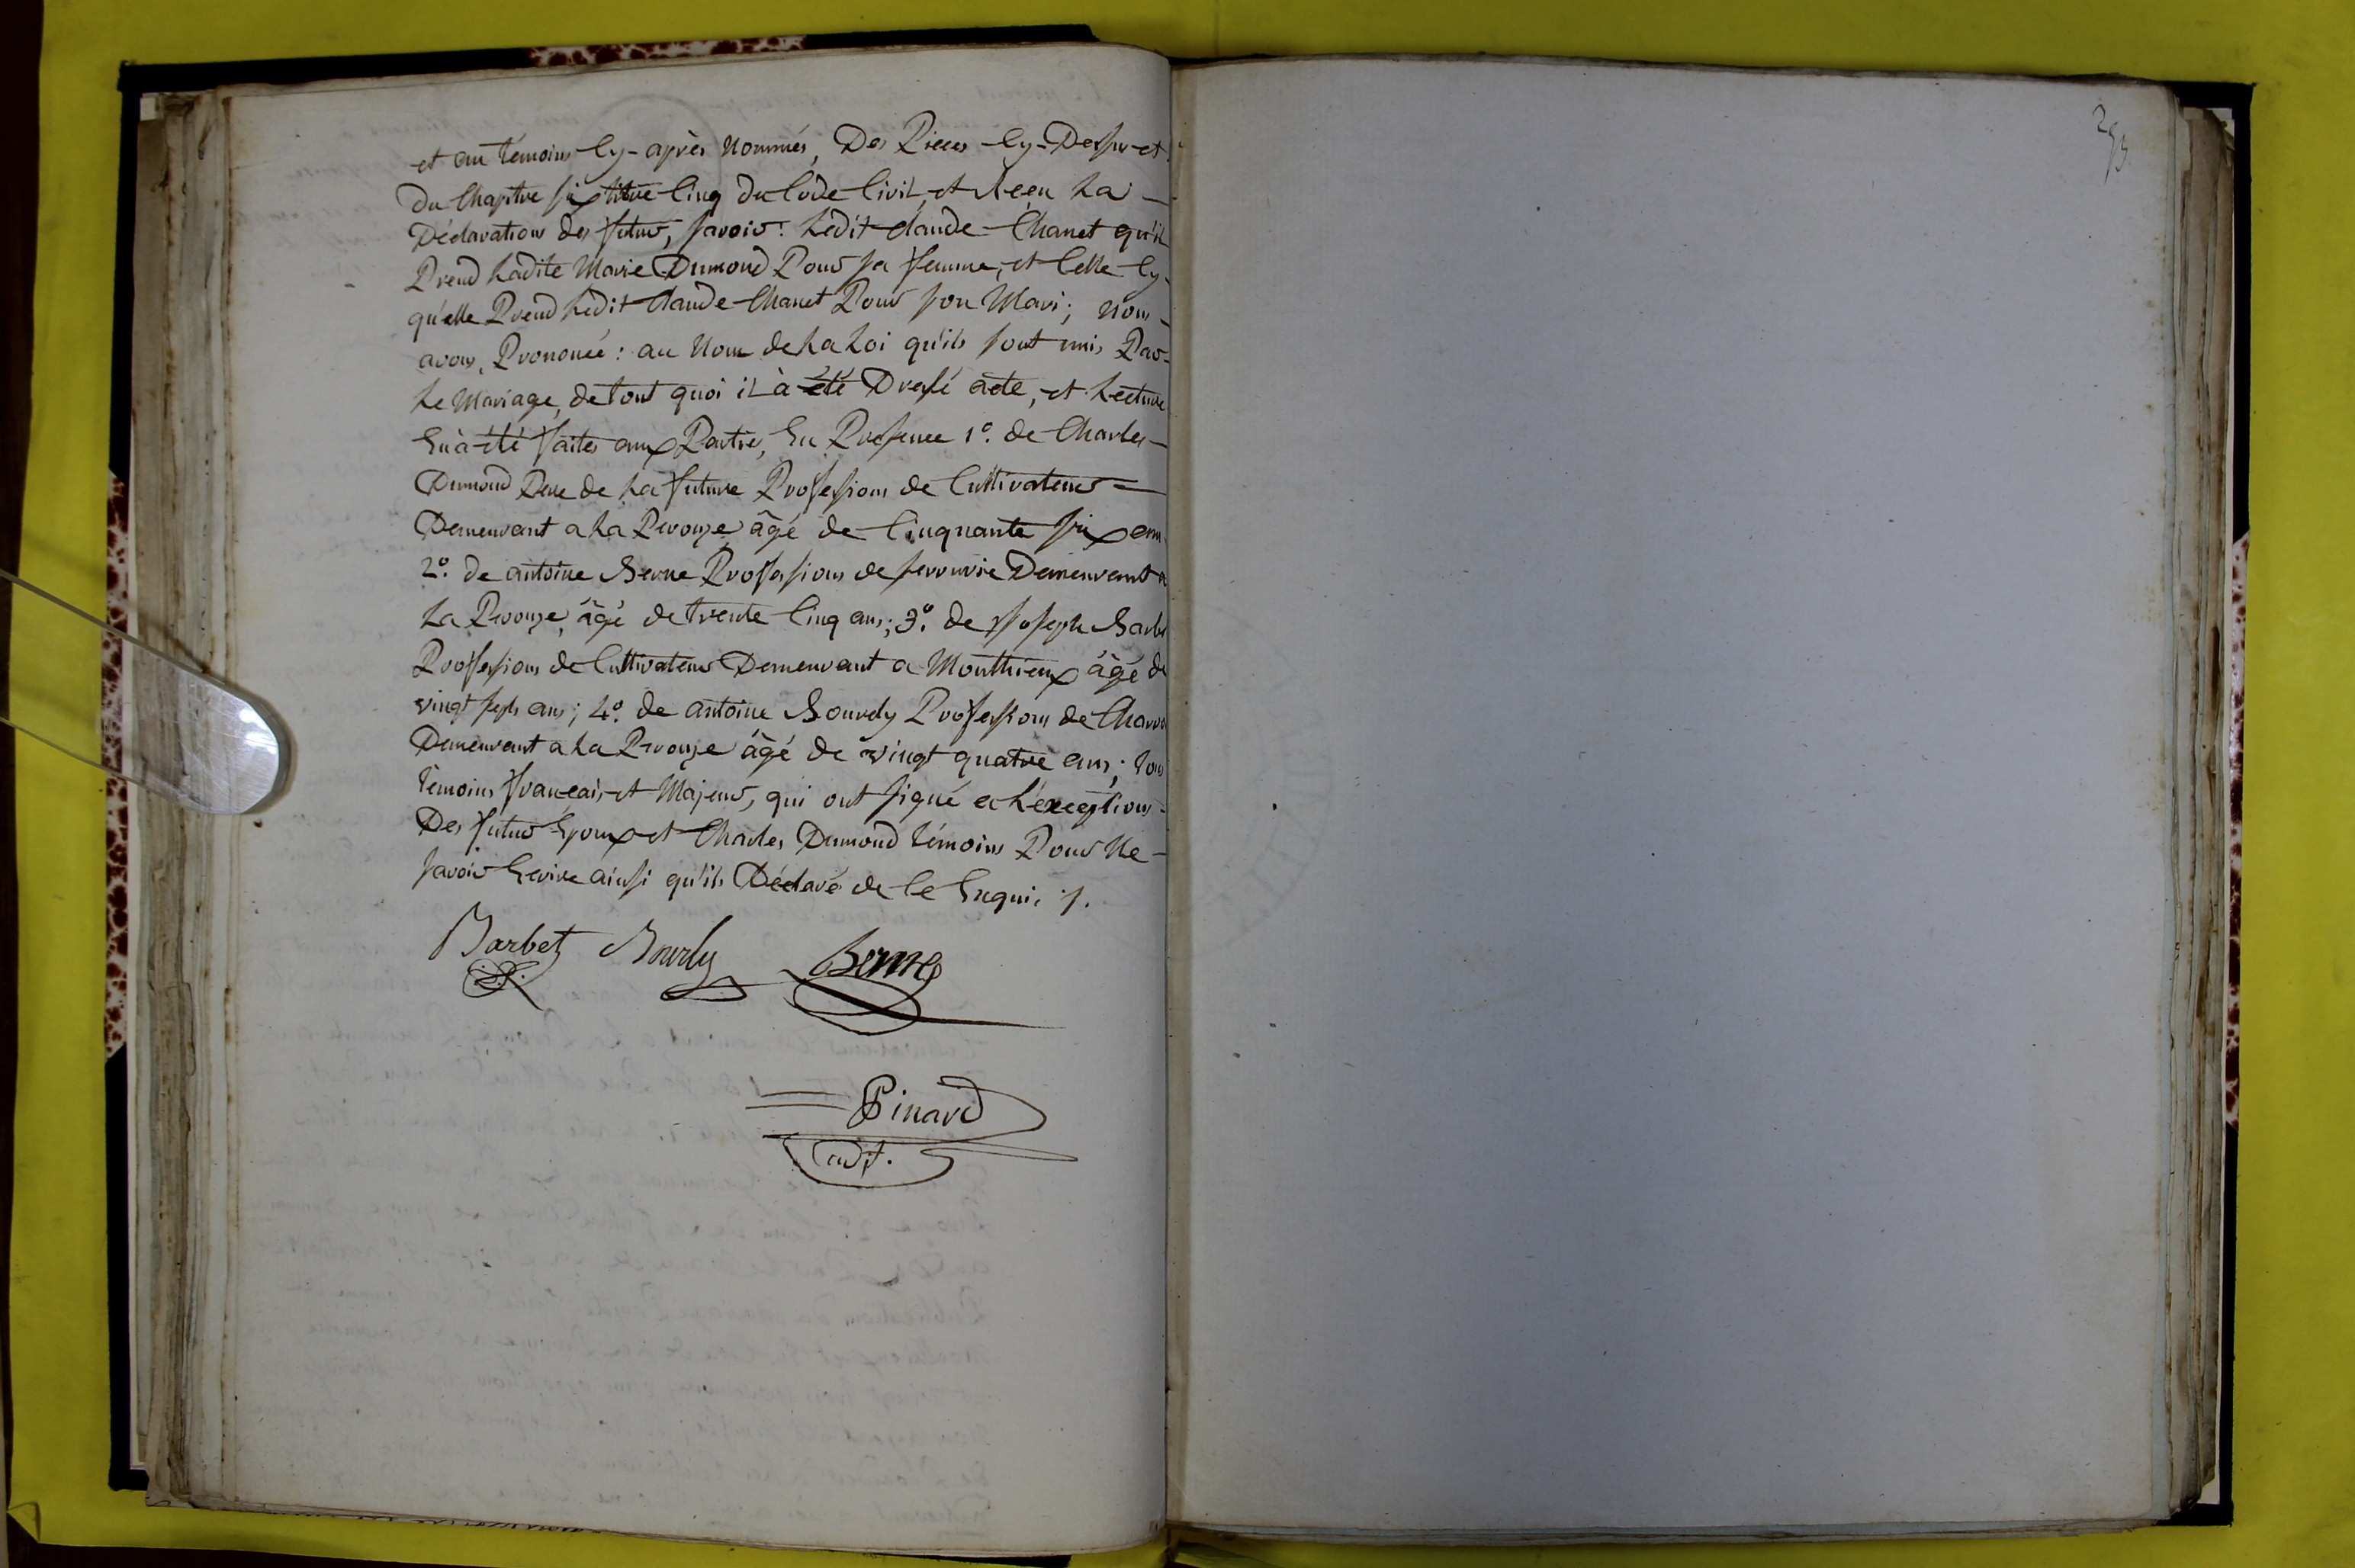 et au témoins Cy-après Nommés, Des Pieces Cy-Dessus et
du Chapitre six titre Cinq du Code Civil, et Reçu La
Déclaration des futur, savoir : Ledit Claude Chanet qu'il
Prend Ladite Marie Dumond Pour sa femme, et Celle Cy-
qu'elle Prend Ledit Claude Chanet Pour son Mari ; nous
avons, Prononcé : au Nom de La Loi qu'ils sont unis Par
Le Mariage, de tout quoi il à été Dressé acte, et Lecture
En à été faites aux Parties, En Presence 1º. de Charles
Dumond Pere de La future Profession de Cultivateur =
Demeurant a La Perouze âgé de Cinquante six ans
2º. de antoine Berne Profession de serrurie Demeurant a
La Perouze, âgé de trente Cinq ans ; 3º. de Joseph Barbe
Profession de Cultivateur Demeurant a Monthieux âgé de
vingt sept ans ; 4º. de antoine Bourdy Profession de Charro
Demeurant a La Perouze âgé de vingt quatre ans ; tous
témoins français et Majeur, qui ont signé a L'éxception =
Des futur Epoux et Charles Dumond témoins Pour Ne -
savoir Ecrire ainsi qu'ils Déclaré de Ce Enquis /.
Barbet Bourdy Berne
Pinard
adjt.